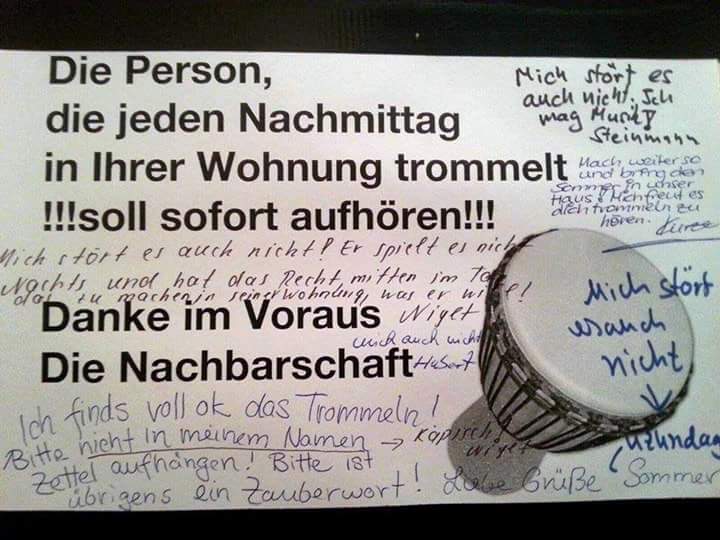 Die Person,
die jeden Nachmittag
in Ihrer Wohnung trommelt
!!!soll sofort aufhören!!!
Mich stört es
auch nicht. Ich
mag Musik!
Steinmann
Mach weiter so
und bring den
Sommer in unser
Haus! Mich freut es
dich trommeln zu
hören.
Mich stört es auch nicht! Er spielt es nicht
Nachts und hat das Recht mitten im Tag
das zu machen in seiner Wohnung, was er will!
Niget
Danke im Voraus
mich auch nicht
Hubert
Die Nachbarschaft
Mich stört
es auch
nicht
Ich finds voll ok das Trommeln!
Bitte nicht in meinem Namen → Kapisch!
Zettel aufhängen! Bitte ist
übrigens ein Zauberwort! Liebe Grüße Sommer